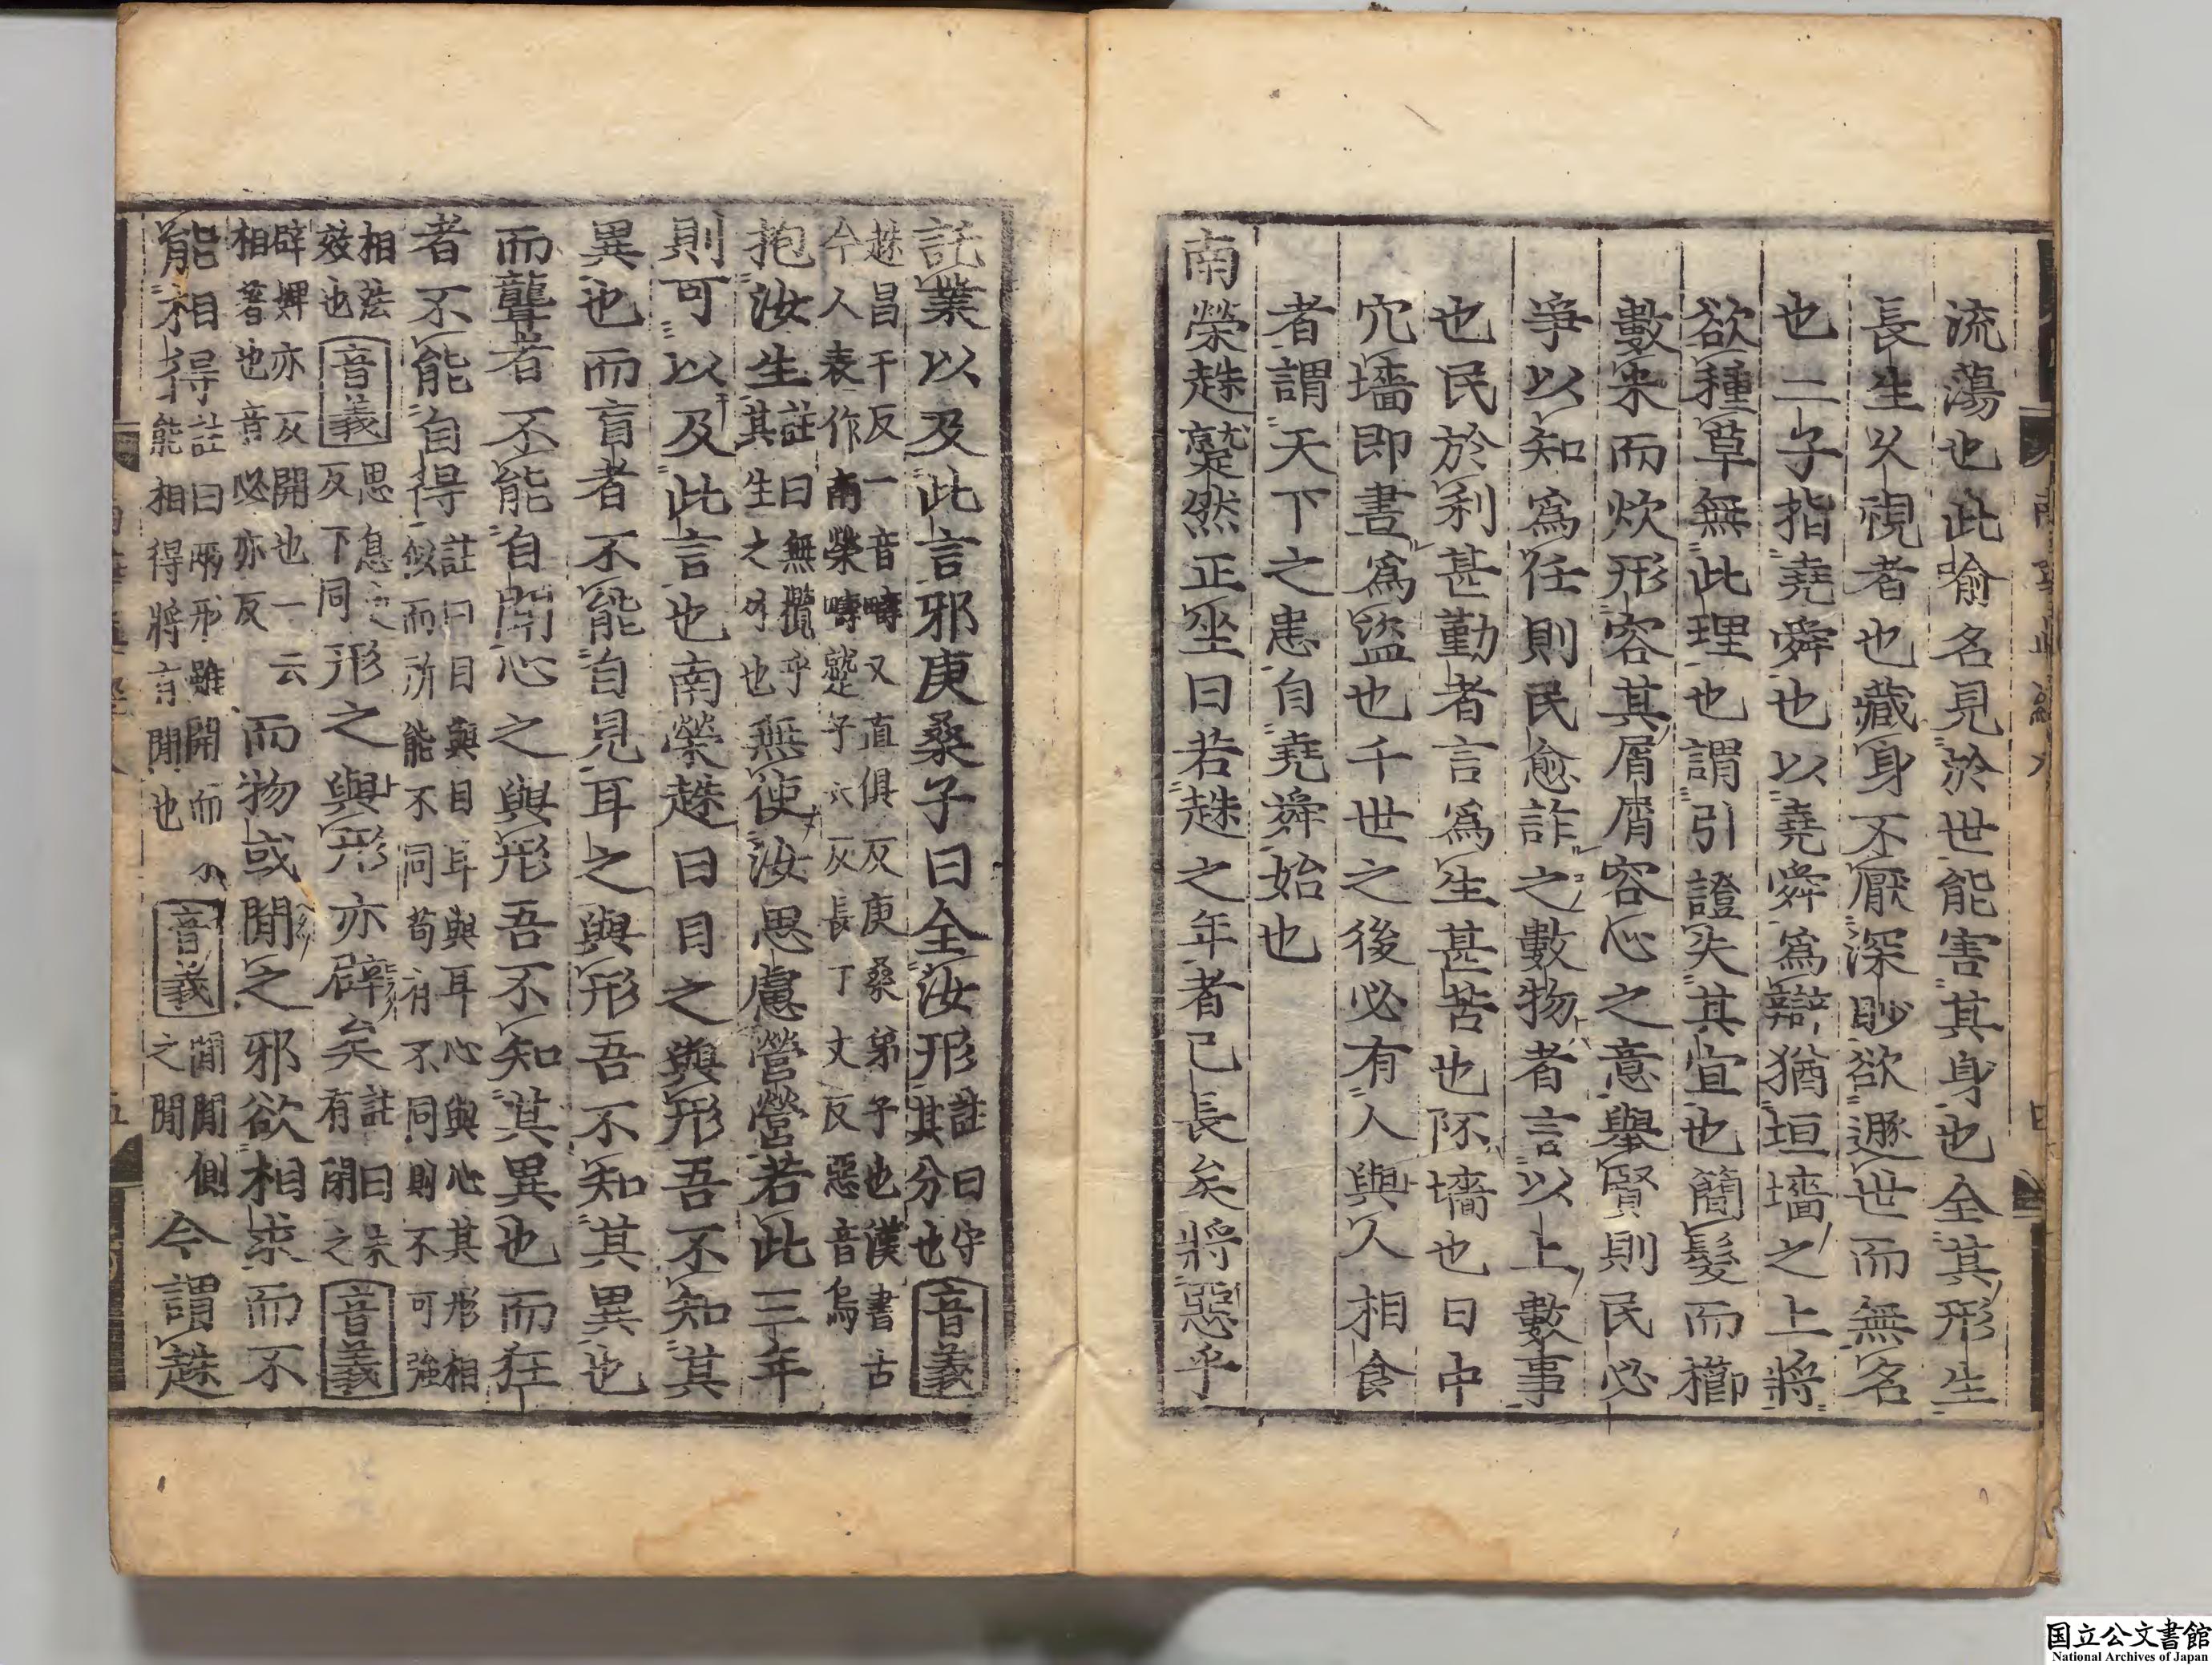 流蕩也此喻名見於世能害其身也全其形生
長生久視者也藏身不厭深眇欲遯世而無名
也二子指堯舜也以堯舜爲辯猶垣墻之上將
欲種草無此理也謂引證失其宜也簡髮而櫛
數米而炊形容其屑屑容心之意舉賢則民必
爭以知爲任則民愈詐之數物者言以上數事
也民於利甚勤者言爲生甚苦也阫墻也日中
穴墻即晝爲盜也千世之後必有人與人相食
者謂天下之患自堯舜始也
南榮趎蹵然正坐曰若趎之年者已長矣將惡乎
託業以及此言邪庚桑子曰全汝形註曰守其分也音義
趎昌于反一音疇又直俱反庚桑弟子也漢書古
今人表作南榮疇蹵子六反長丁丈反惡音烏
抱汝生註曰無攬乎其生之外也無使汝思慮營營若此三年
則可以及此言也南榮趎曰目之與形吾不知其
異也而盲者不能自見耳之與形吾不知其異也
而聾者不能自聞心之與形吾不知其異也而狂
者不能自得註曰目與目耳與耳心與心其形相似而所能不同苟有不同則不可強
相法效也音義思息反下同形之與形亦辟矣註曰未有閉之音義
辟婢亦反開也一云相著也音必亦反而物或間之邪欲相求而不
能相得註曰兩形雖開而不能相得將有間也音義間間側之間今謂趎